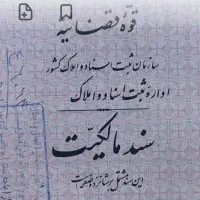 قوّه قضائیه
سازمان ثبت اسناد و املاک کشور
اداره ثبت اسناد و املاک
سند مالکیّت
این سند مشتمل بر شانزده صفحه است